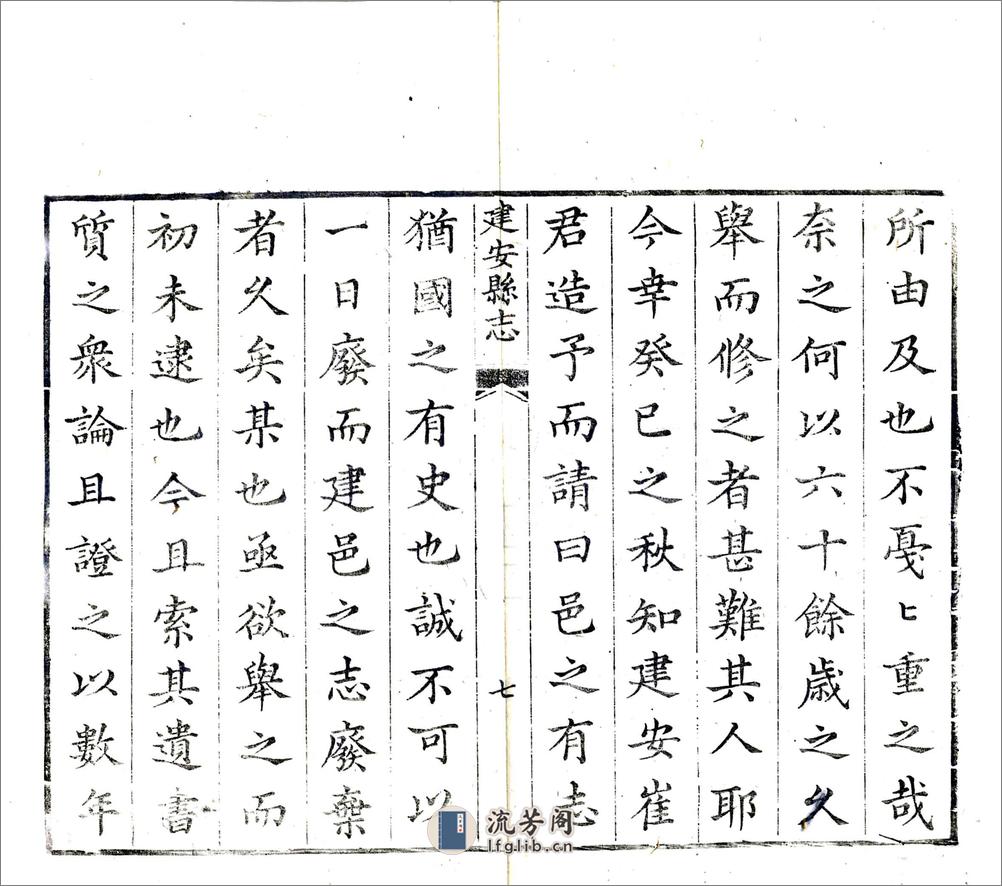 所由及也不憂〻重之哉
奈之何以六十餘歲之久
舉而修之者甚難其人耶
今幸癸已之秋知建安崔
君造予而請曰邑之有志
建安縣志
七
猶國之有史也誠不可以
一日廢而建邑之志廢棄
者久矣某也亟欲舉之而
初未逮也今且索其遺書
質之衆論且證之以數年
流芳阁
lfglib.cn